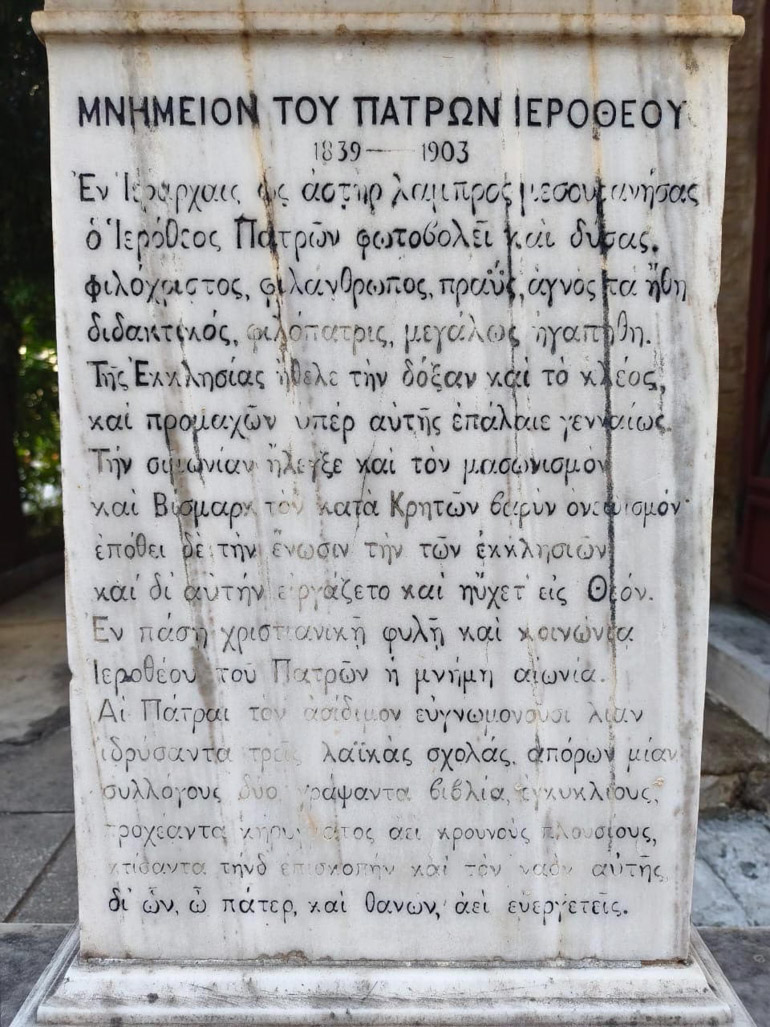 ΜΝΗΜΕΙΟΝ ΤΟΥ ΠΑΤΡΩΝ ΙΕΡΟΘΕΟΥ
1839 — 1903
Ἐν Ἱεράρχαις ὡς ἀστὴρ λαμπρὸς μεσουρανήσας
ὁ Ἱερόθεος Πατρῶν φωτοβολεῖ καὶ δύσας.
φιλόχριστος, φιλάνθρωπος, πραΰς, ἁγνὸς τὰ ἤθη
διδακτικός, φιλόπατρις, μεγάλως ἠγαπήθη.
Τῆς Ἐκκλησίας ἤθελε τὴν δόξαν καὶ τὸ κλέος,
καὶ προμαχῶν ὑπὲρ αὐτῆς ἐπάλαιε γενναίως.
Τὴν σιμωνίαν ἤλεγξε καὶ τὸν μασωνισμὸν
καὶ Βίσμαρκ τὸν κατὰ Κρητῶν βαρὺν ὀνειδισμόν
ἐπόθει δὲ τὴν ἕνωσιν τὴν τῶν ἐκκλησιῶν
καὶ δι' αὐτὴν εἰργάζετο καὶ ηὔχετ' εἰς Θεόν.
Ἐν πάσῃ χριστιανικῇ φυλῇ καὶ κοινωνίᾳ
Ἱεροθέου τοῦ Πατρῶν ἡ μνήμη αἰωνία.
Αἱ Πάτραι τὸν ἀοίδιμον εὐγνωμονοῦσι λίαν
ἱδρύσαντα τρεῖς λαϊκὰς σχολάς, ἀπόρων μίαν
συλλόγους δύο, γράψαντα βιβλία, ἐγκυκλίους,
προχέαντα κηρύγματος ἀεὶ κρουνοὺς πλουσίους,
κτίσαντα τήνδ' ἐπισκοπὴν καὶ τὸν ναὸν αὐτῆς,
δι' ὧν, ὦ πάτερ, καὶ θανών, ἀεὶ εὐεργετεῖς.